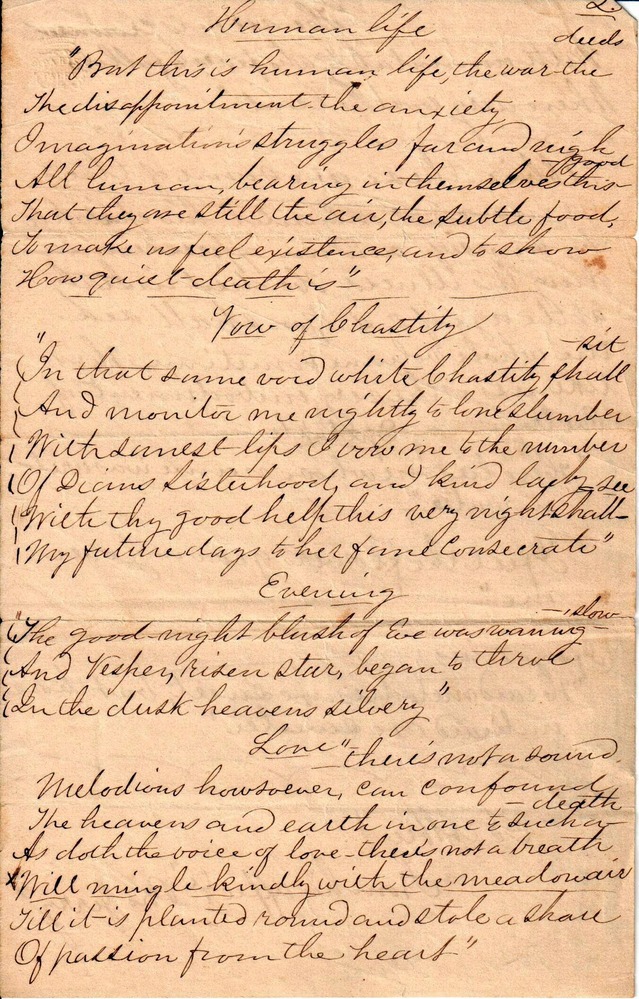 2.
Human life
deeds
"But this is human life, the war the
The disappointment the anxiety
Imagination's struggles far and nigh
good
All human, bearing in themselves this
That they are still the air, the subtle food,
To make us feel existence, and to show
How quiet death is"
Vow of Chastity
sit
"In that same void white Chastity shall
And monitor me nightly to lone slumber
With sanest lips I vow me to the number
Of Dians Sisterhood, and kind lady see
With thy good help this very night shall
My future days to her fame Consecrate"
Evening
slow
"The good-night blush of Eve was waning
And Vesper, risen star, began to throe
In the dusk heavens silvery"
Love "there's not a sound.
Melodious howsoever, can confound
death
The heavens and earth in one to such a
As doth the voice of love - there's not a breath
x Will mingle kindly with the meadow air
Till it is planted round and stole a share
Of passion from the heart"